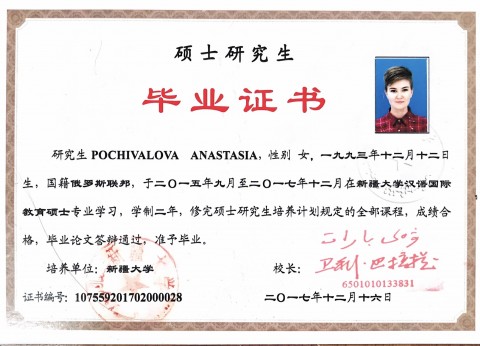 硕士研究生
毕业证书
研究生 POCHIVALOVA ANASTASIA，性别 女，一九九三年十二月十二日
生，国籍俄罗斯联邦，于二〇一五年九月至二〇一七年十二月在新疆大学汉语国际
教育硕士专业学习，学制二年，修完硕士研究生培养计划规定的全部课程，成绩合
格，毕业论文答辩通过，准予毕业。
培养单位：新疆大学
校长：
6501010133831
证书编号：107559201702000028
二〇一七年十二月十六日